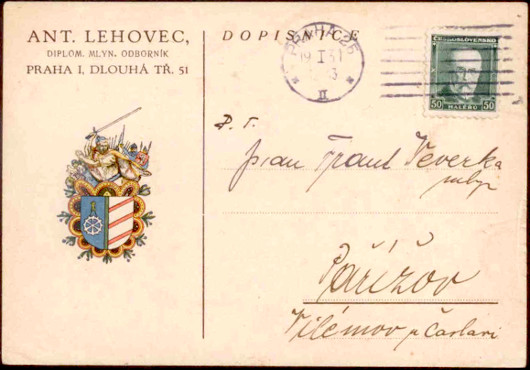 ANT. LEHOVEC,
DIPLOM. MLYN. ODBORNÍK
PRAHA I, DLOUHÁ TŘ. 51
DOPISNICE
PRAHA 25
19 I 31
II
ČESKOSLOVENSKO
50 HALÉŘŮ 50
P. T.
pan Frant Veverka
mlyn
Pařížov
Vilémov u Čáslavi